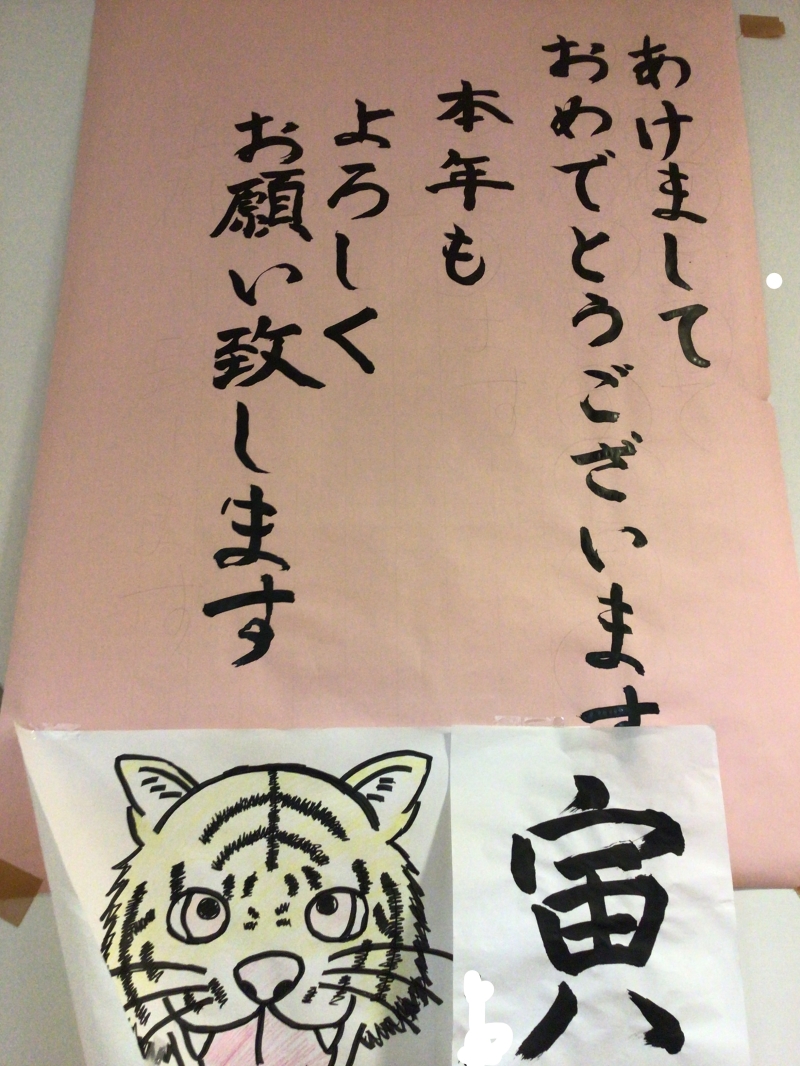 あけまして
おめでとうございます
本年も
よろしく
お願い致します
寅